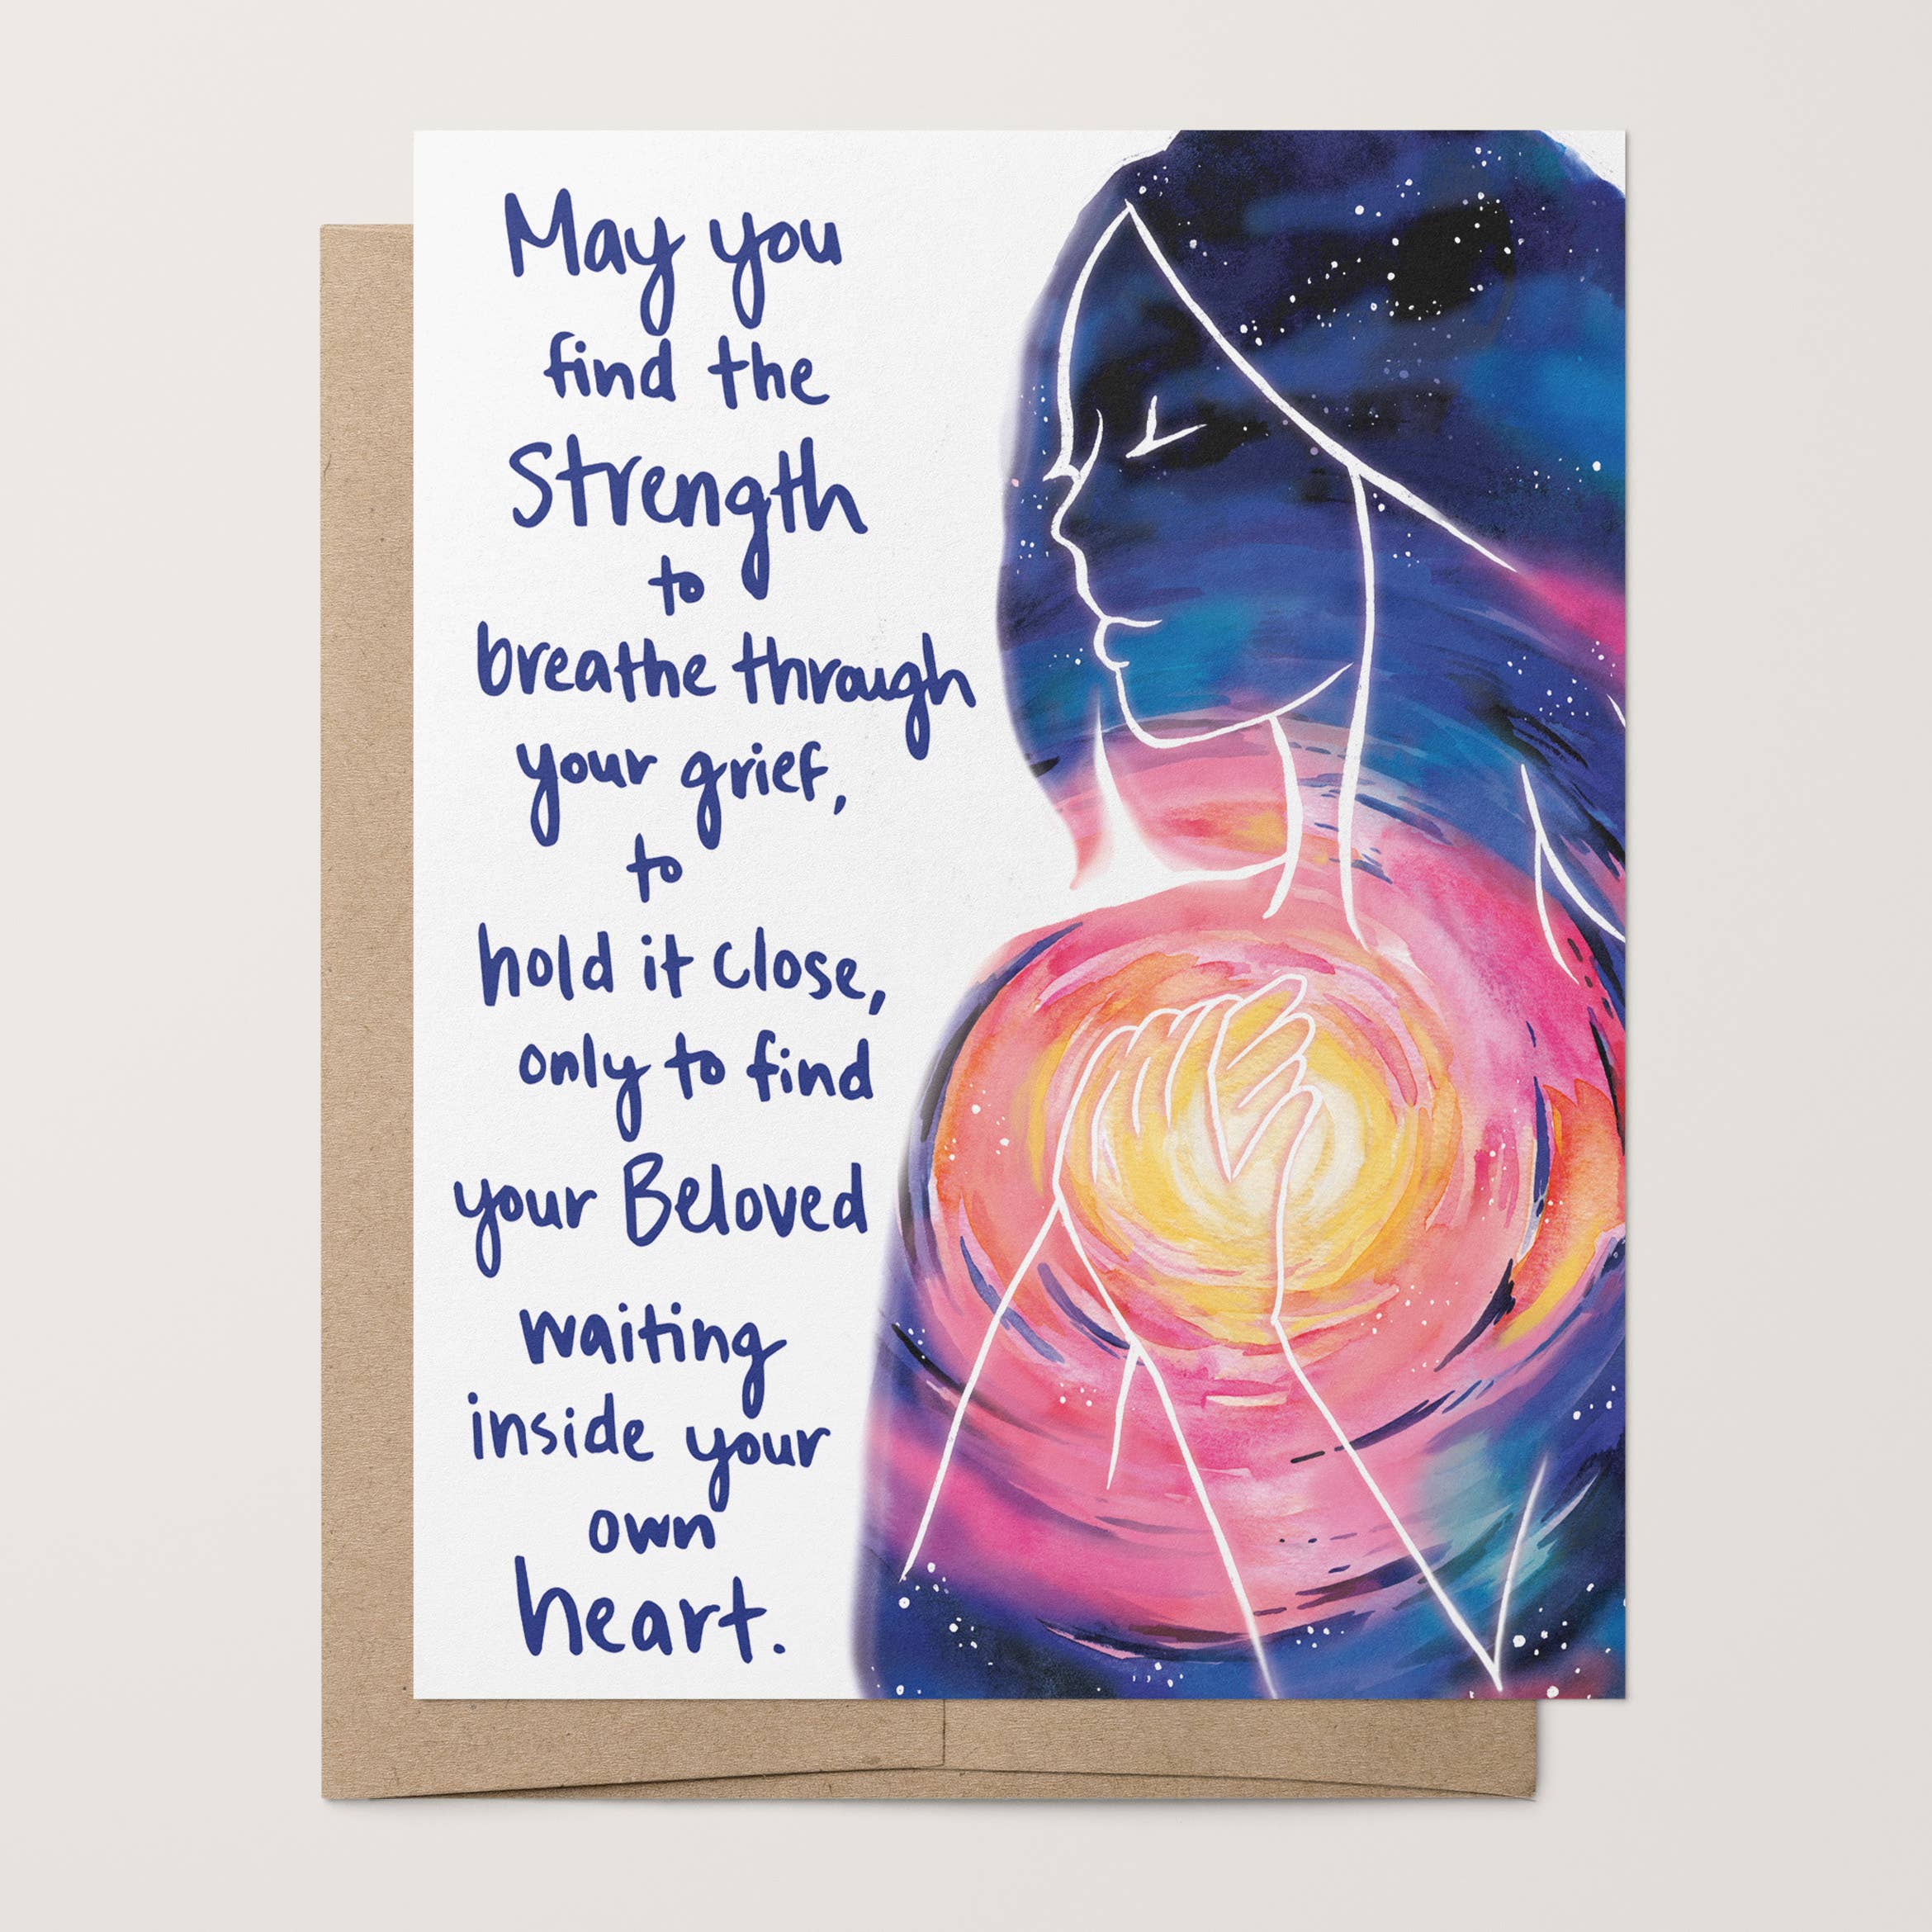 May you
find the
Strength
to
breathe through
your grief,
to
hold it close,
only to find
your Beloved
waiting
inside your
own
heart.